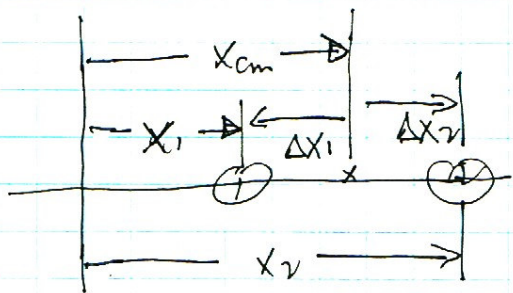 Xcm
X1 ΔX1 ΔX2
1 x 2
X2